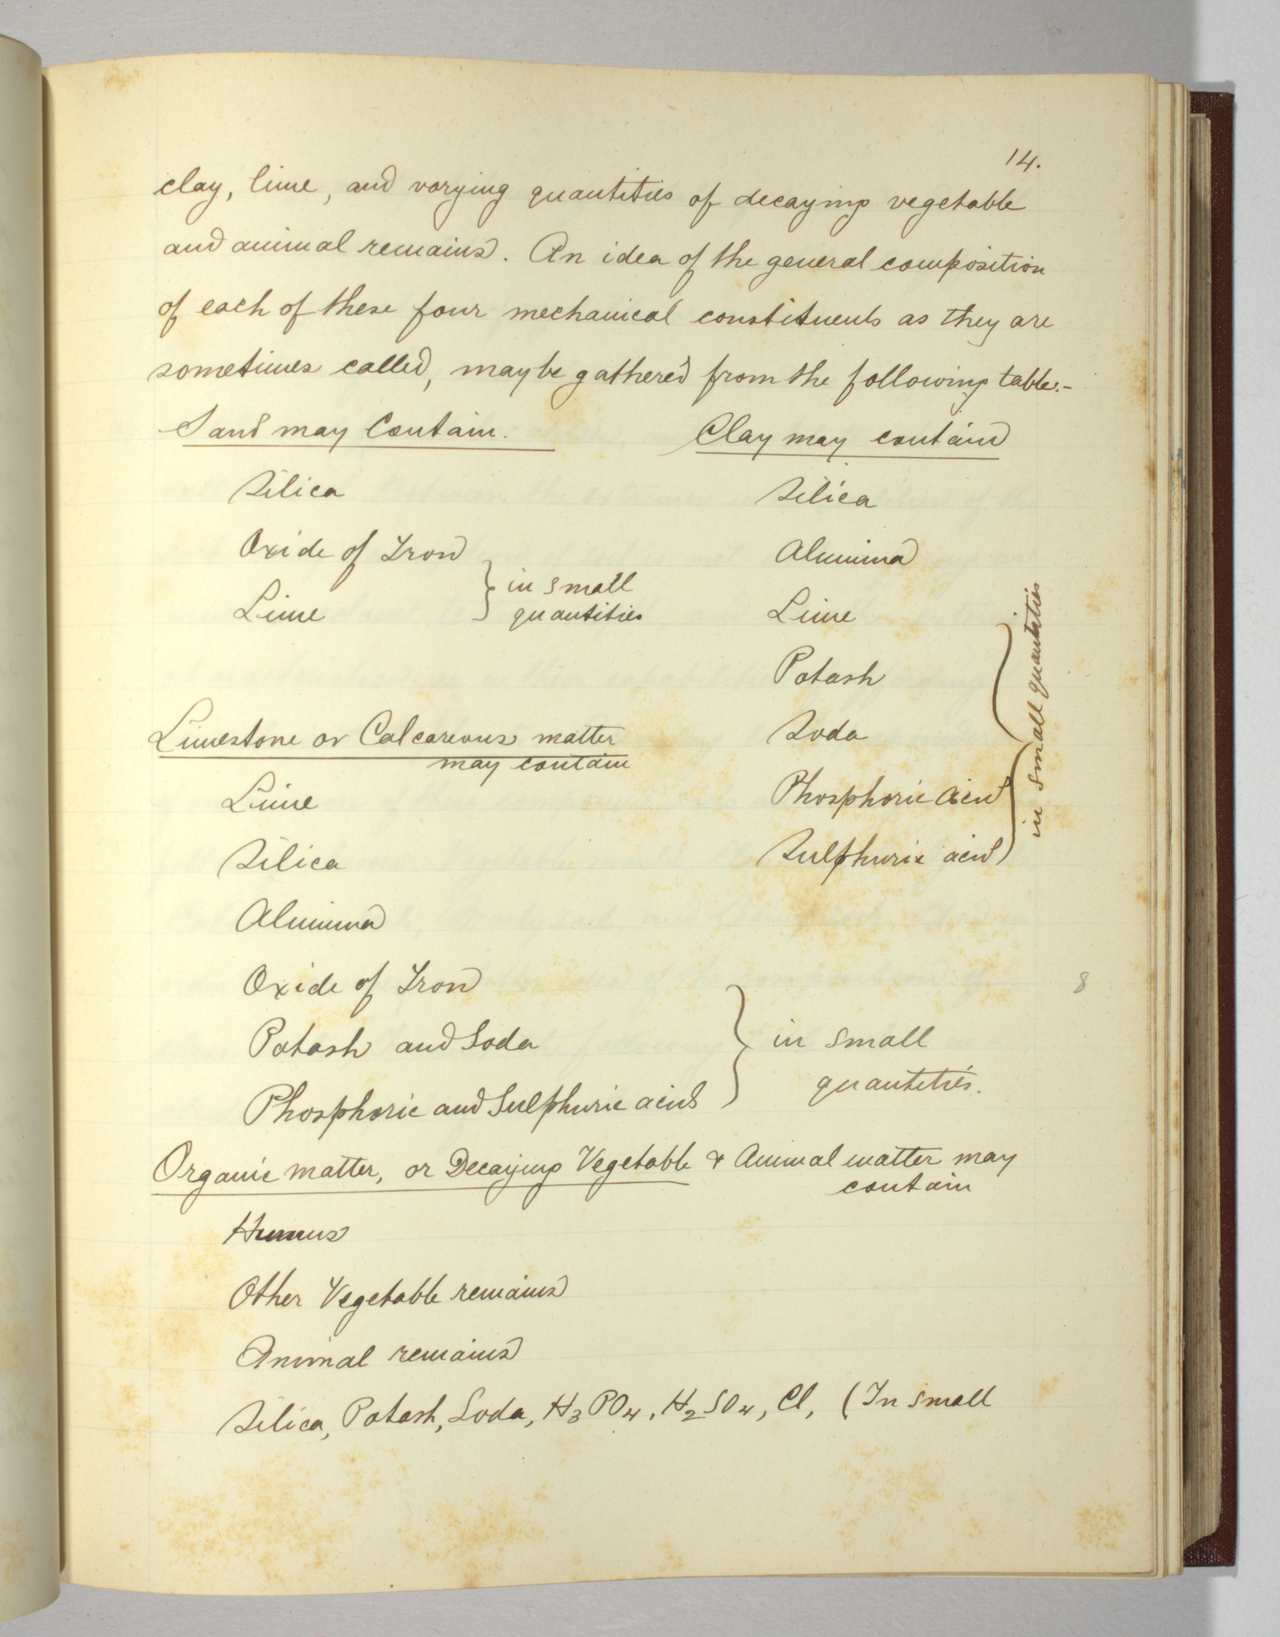 14.
clay, lime, and varying quantities of decaying vegetable
and animal remains. An idea of the general composition
of each of these four mechanical constituents as they are
sometimes called, may be gathered from the following table:-
Sand may Contain.
Silica
Oxide of Iron
Lime
} in small
quantities
Clay may contain
Silica
Alumina
Lime
Potash
Soda
Phosphoric Acid
Sulphuric acid
} in small quantities
Limestone or Calcareous matter
may contain
Lime
Silica
Alumina
Oxide of Iron
Potash and Soda
Phosphoric and Sulphuric acids
} in small
quantities.
8
Organic matter, or Decaying Vegetable & Animal matter may
contain
Humus
Other Vegetable remains
Animal remains
Silica, Potash, Soda, H3PO4, H2SO4, Cl, (In small